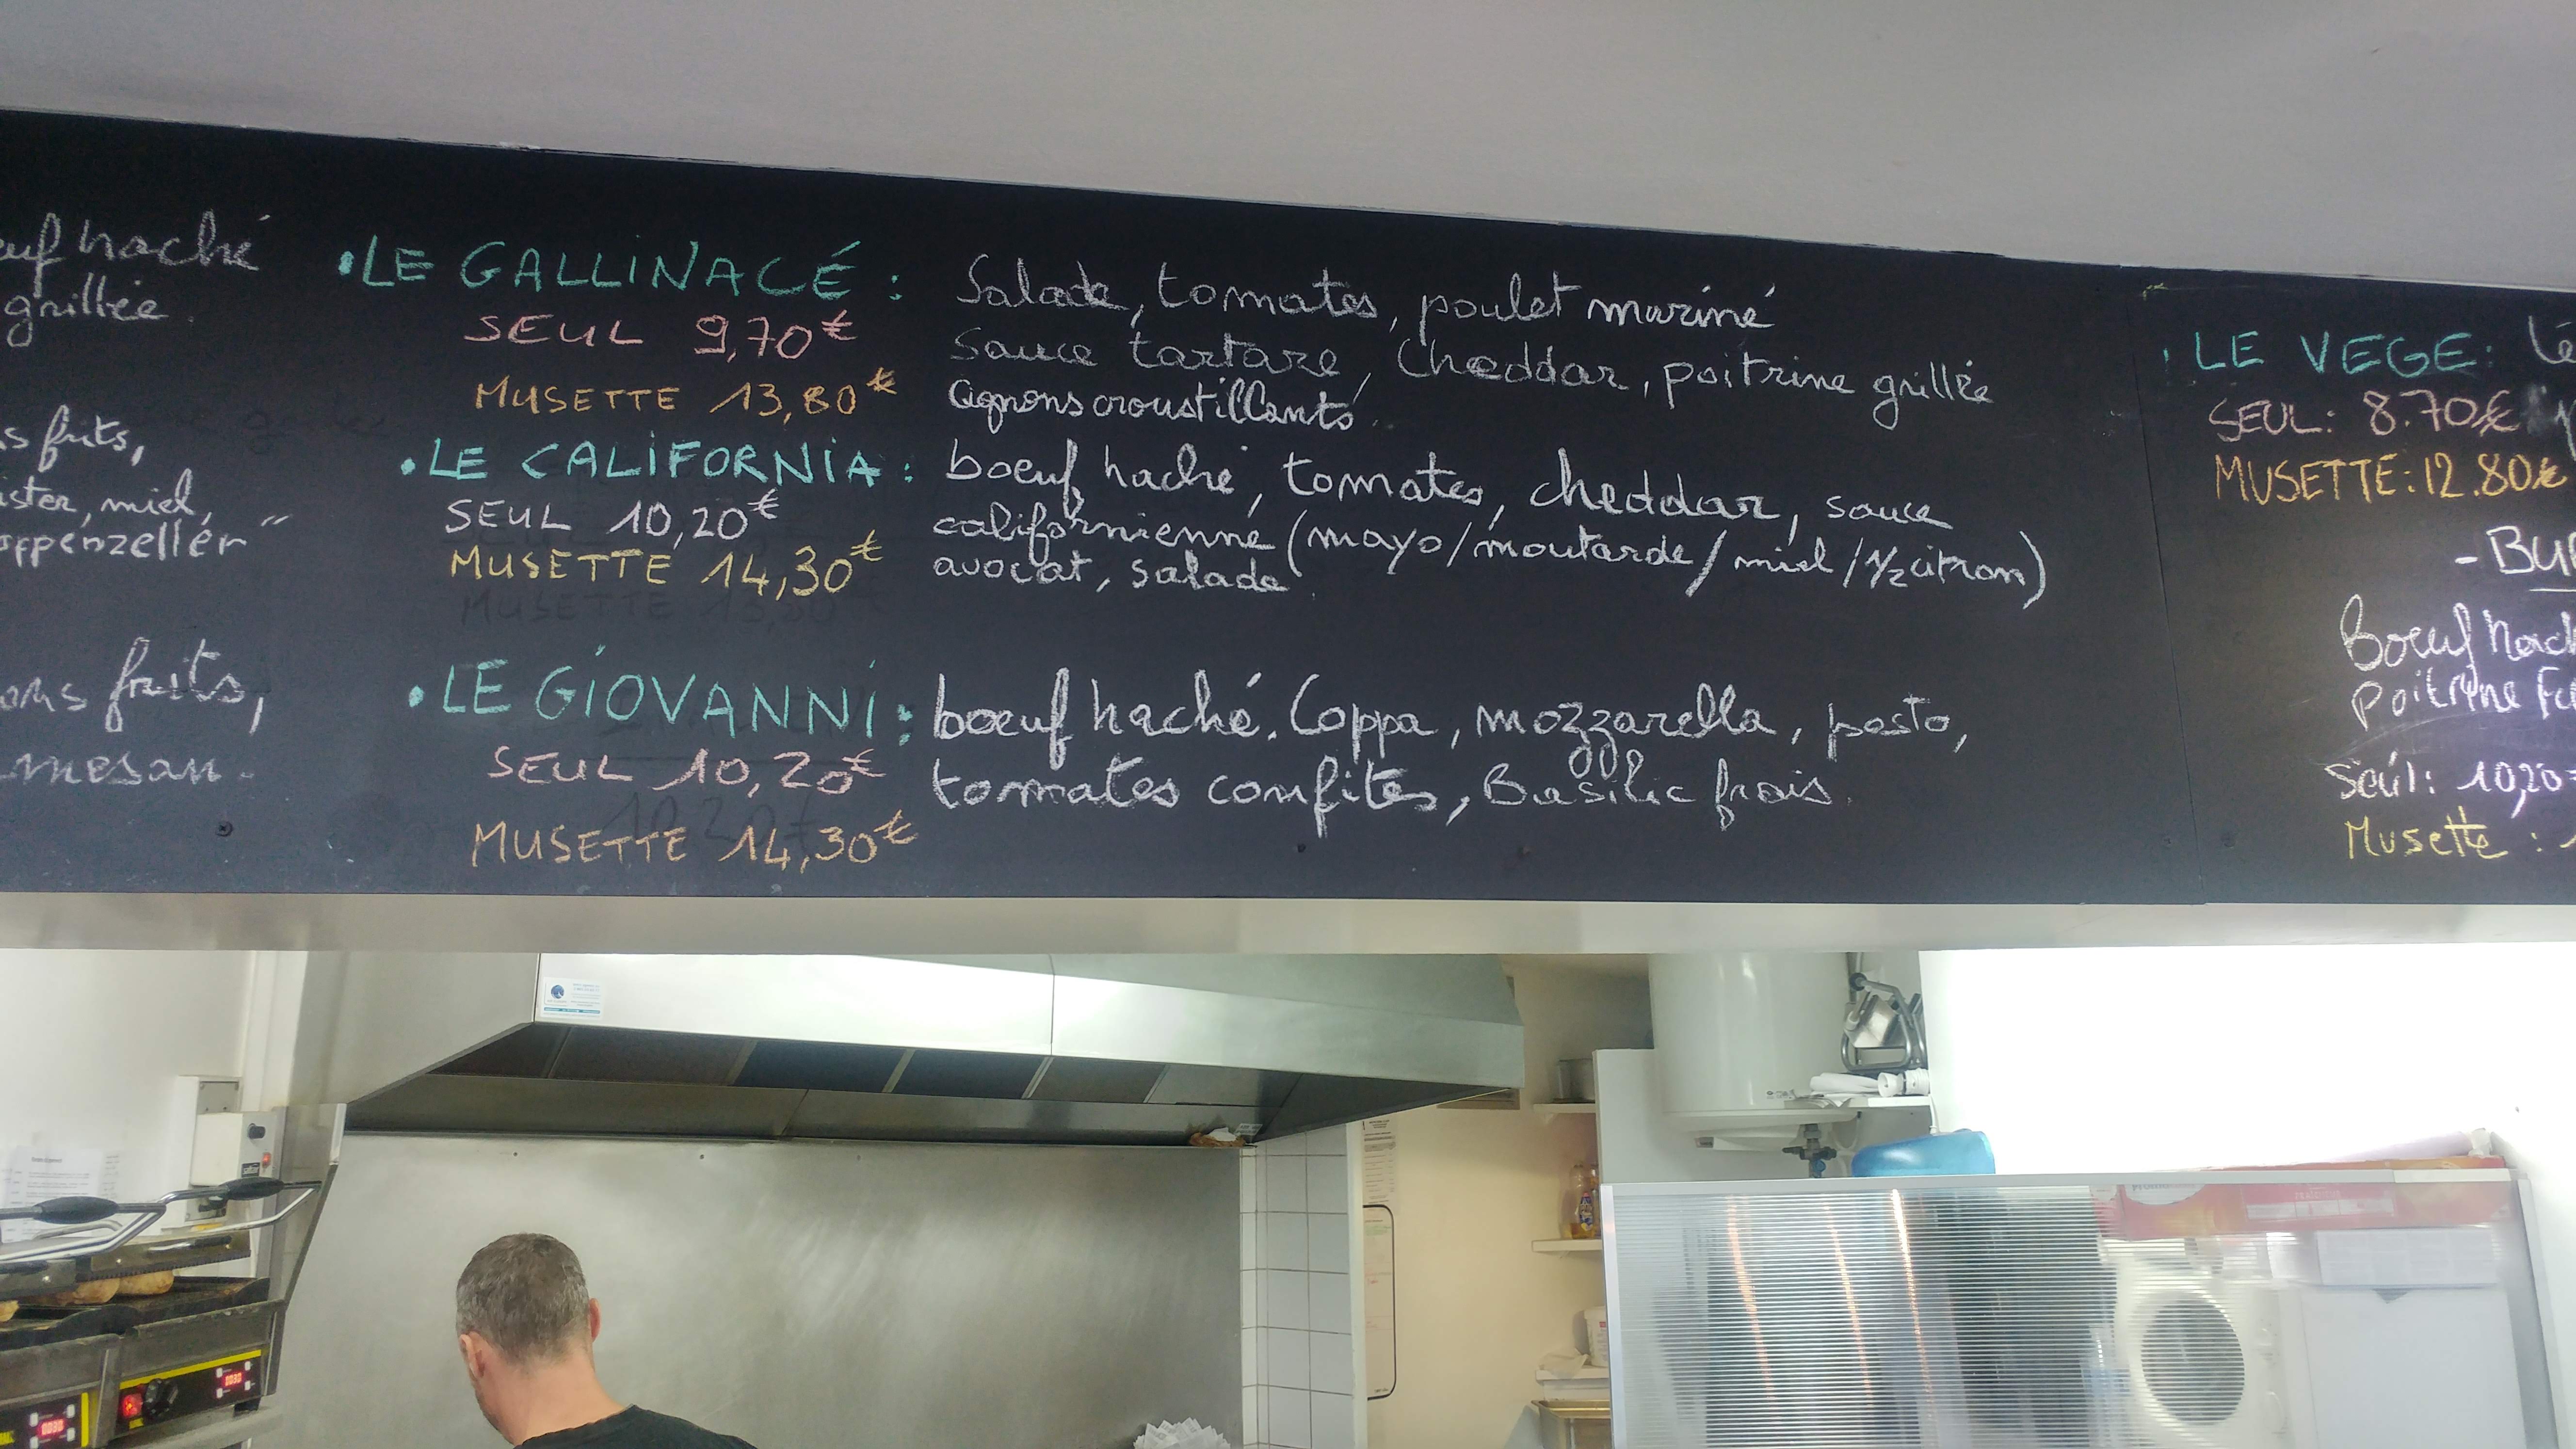 haché
grillée
frits,
miel,
frits,
• LE GALLINACÉ : Salade, tomates, poulet mariné
SEUL 9,70€ Sauce tartare, Cheddar, poitrine grillée
MUSETTE 13,80€ oignons croustillants.
• LE CALIFORNIA : boeuf haché, tomates, cheddar, sauce
SEUL 10,20€ californienne (mayo/moutarde/miel/1/2 citron)
MUSETTE 14,30€ avocat, salade.
• LE GIOVANNI : boeuf haché. Coppa, mozzarella, pesto,
SEUL 10,20€ tomates confites, Basilic frais.
MUSETTE 14,30€
• LE VEGE:
SEUL: 8.70€
MUSETTE: 12.80€
Boeuf
Poitrine
Seul: 10,20
Musette :